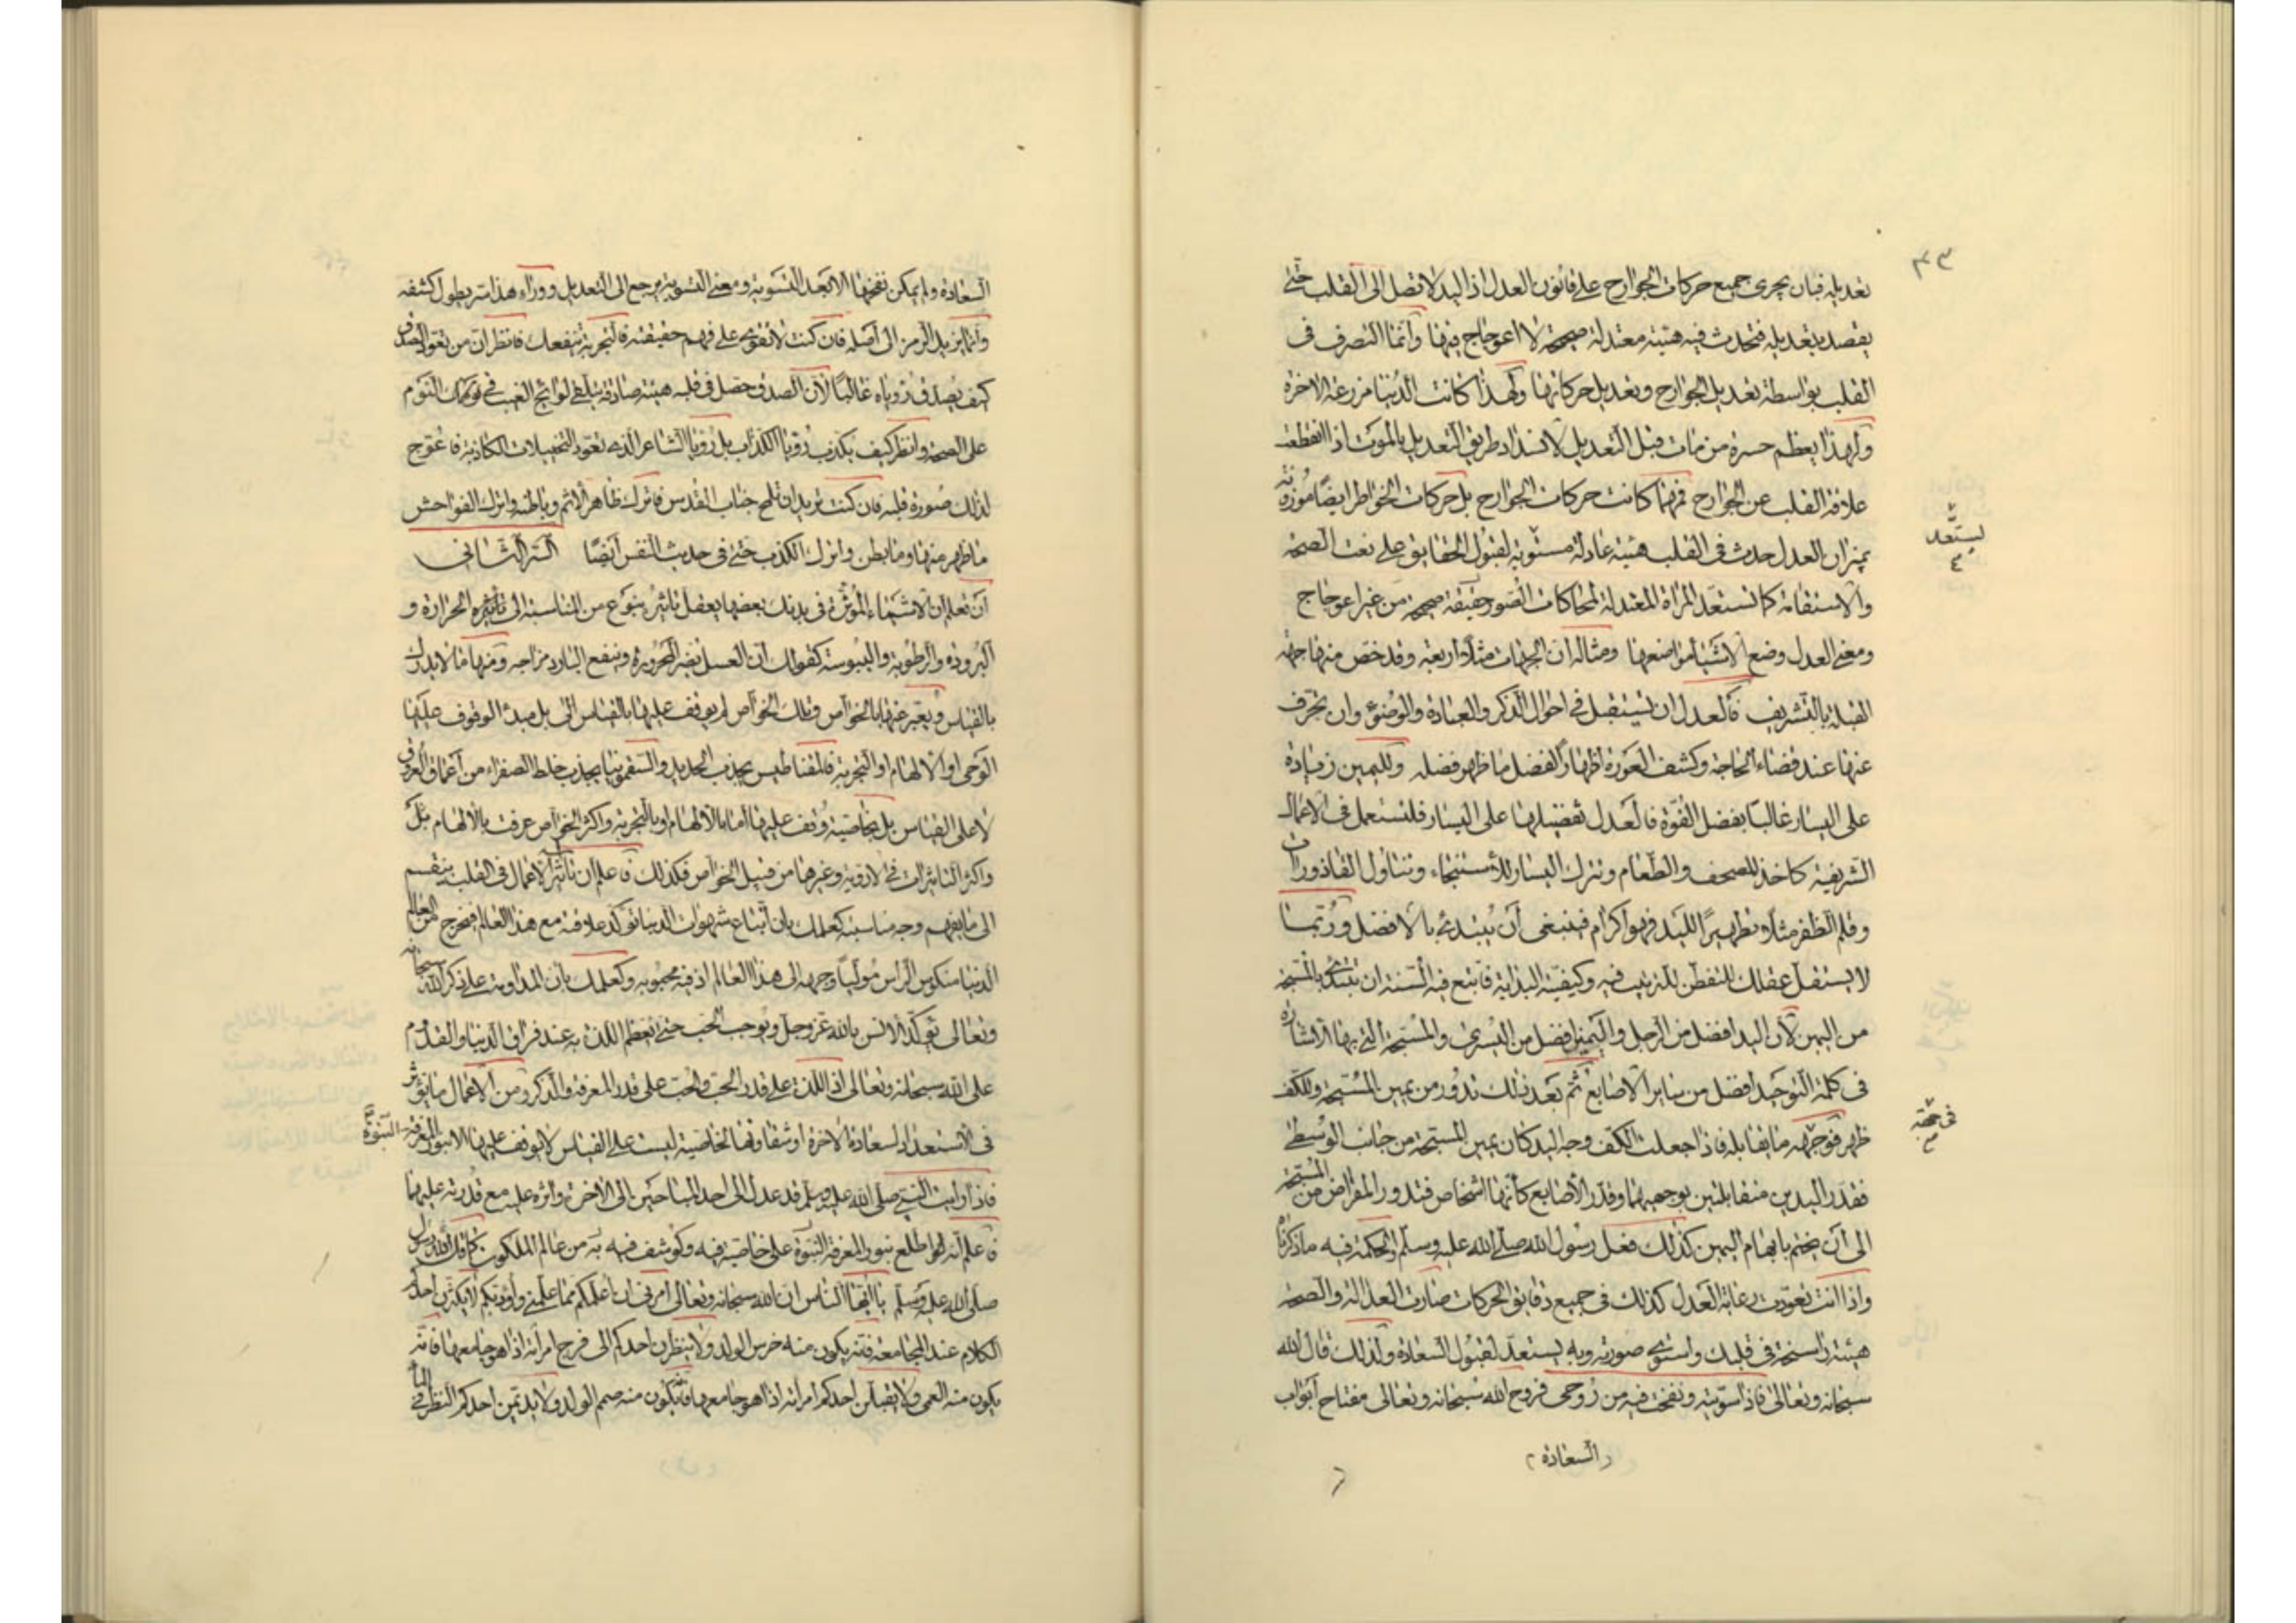 ٤٣
تعديله فبان يجرى جميع حركات الجوارح على قانون العدل اذ اليد لا تصل الى القلب حتى
يقصد بتعديله فتحدث فيه هيئة معتدلة صحيحة لا اعوجاج فيها وانما التصرف فى
القلب بواسطة تعديل الجوارح وتعديل حركاتها ولهذا كانت الدنيا مزرعة الاخرة
ولهذا يعظم حسرة من مات قبل التعديل لانسداد طريق التعديل بالموت اذا انقطعت
علاقة القلب عن الجوارح فمهما كانت حركات الجوارح بل حركات الخواطر ايضا موزونة
بميزان العدل حدث فى القلب هيئة عادلة مستوية لقبول الحقايق على نعت الصحة
ليستعد
والاستقامة كما تستعد المرآة المعتدلة لمحاكات الصور حقيقة صحيحة من غير اعوجاج
ومعنى العدل وضع الاشياء مواضعها ومثاله ان الجهات مثلا اربعة وقد خص منها جهة
القبلة بالتشريف فالعدل ان تستقبل فى احوال الذكر والعبادة والوضوء وان تنحرف
عنها عند قضاء الحاجة وكشف العورة اظهارا لفضل ما ظهر فضله ولليمين زيادة
على اليسار غالبا بفضل القوة فالعدل تفضيلها على اليسار فلتستعمل فى الاعمال
الشريفة كاخذ المصحف والطعام وتترك اليسار للاستنجاء وتناول القاذورات
وقلم الظفر مثلا وتطهيرا لليد فهو اكرام فينبغى ان يبتدئ بالافضل وربما
لا يستقل عقلك للتفطن للترتيب فيه وكيفية البداية فاتبع فيه السنة ان تبتدئ بالمسبحة
من اليمين لان اليد افضل من الرجل واليمين افضل من اليسرى والمسبحة التى بها الاشارة
فى كلمة التوحيد افضل من ساير الاصابع ثم بعد ذلك تدور من يمين المسبحة وللكف
فى جهة
ظهر فوجهه ما يقابله فاذا جعلت الكف وجه اليد كان يمين المسبحة من جانب الوسطى
فقدر اليدين متقابلتين بوجهيهما وقدر الاصابع كانها اشخاص فتدور المقراض من المسبحة
الى ان يختم بابهام اليمين كذلك فعل رسول الله صلى الله عليه وسلم والحكمة فيه ما ذكرناه
واذا انت تعودت رعاية العدل كذلك فى جميع دقايق الحركات صارت العدالة والصحة
هيئة راسخة فى قلبك واستوى صورته وبه يستعد لقبول السعادة ولذلك قال الله
سبحانه وتعالى فاذا سويته ونفخت فيه من روحى فروح الله سبحانه وتعالى مفتاح ابواب
السعادة
السعادة ولم يمكن نفخها الا بعد التسوية ومعنى التسوية يرجع الى التعديل ووراء هذا سر يطول كشفه
وانما يزيد الرمز الى اصله فان كنت لا تقوى على فهم حقيقته فالتجربة تنفعك فانظر ان من تعود الصدق
كيف يصدق رؤياه غالبا لان الصدق حصل فى قلبه هيئة صادقة يتلقى لوايح الغيب فى النوم
على الصحة وانظر كيف يكذب رؤيا الكذاب بل رؤيا الشاعر الذى تعود التخيلات الكاذبة فاعوج
لذلك صورة قلبه فان كنت تريد ان تلمح جناب القدس فاترك ظاهر الاثم وباطنه واترك الفواحش
ما ظهر منها وما بطن واترك الكذب حتى فى حديث النفس ايضا السر الثانى
ان تعلم ان الاشياء المؤثرة فى بدنك بعضها يعقل تاثيره بنوع من المناسبة الى تأثير الحرارة و
البرودة والرطوبة واليبوسة كقولك ان العسل يضر المحرور وينفع البارد مزاجه ومنها ما لا يدرك
بالقياس ويعبر عنها بالخواص وتلك الخواص لم يوقف عليها بالقياس الى بل مبدأ الوقوف عليها
الوحى او الالهام او التجربة فالمقناطيس يجذب الحديد والسقمونيا يجذب خلط الصفراء من اعماق العروق
لا على القياس بل بخاصية وقف عليها اما بالالهام او بالتجربة واكثر الخواص عرفت بالالهام بل
واكثر التاثيرات فى الادوية وغيرها من قبيل الخواص فكذلك فاعلم ان تاثير الاعمال فى القلب ينقسم
الى ما يفهم وجه مناسبته كعلمك بان اتباع شهوات الدنيا تؤكد علاقته مع هذا العالم فيخرج من العالم
الدنيا منكوس الراس موليا وجهه الى هذا العالم اذ فيه محبوبه وكعلمك بان المداومة على ذكر الله سبحانه
وتعالى تؤكد الانس بالله عز وجل ويوجب الحب حتى تعظم اللذة به عند فراق الدنيا والقدوم
على الله سبحانه وتعالى اذ اللذة على قدر الحب والحب على قدر المعرفة والذكر ومن الاعمال ما يؤثر
فى الاستعداد لسعادة الاخرة او شقاوتها لخاصية ليست على القياس لا يوقف عليها الا بنور المعرفة
النبوة
فاذا رايت النبى صلى الله عليه وسلم قد عدل الى احد المباحين الى الاخر وآثره عليه مع قدرته عليهما
فاعلم انه اطلع بنور المعرفة النبوة على خاصية فيه وكوشف فيه به من عالم الملكوت كما قال رسول الله
صلى الله عليه وسلم يا ايها الناس ان الله سبحانه وتعالى امرنى ان اعلمكم مما علمنى واؤدبكم لا يكثرن احدكم
الكلام عند المجامعة فانه يكون منه خرس الولد ولا ينظرن احدكم الى فرج امرأته اذا هو جامعها فانه
يكون منه العمى ولا يقبلن احدكم امرأته اذا هو جامعها فانه يكون منه صمم الولد ولا يديمن احدكم النظر فى الماء